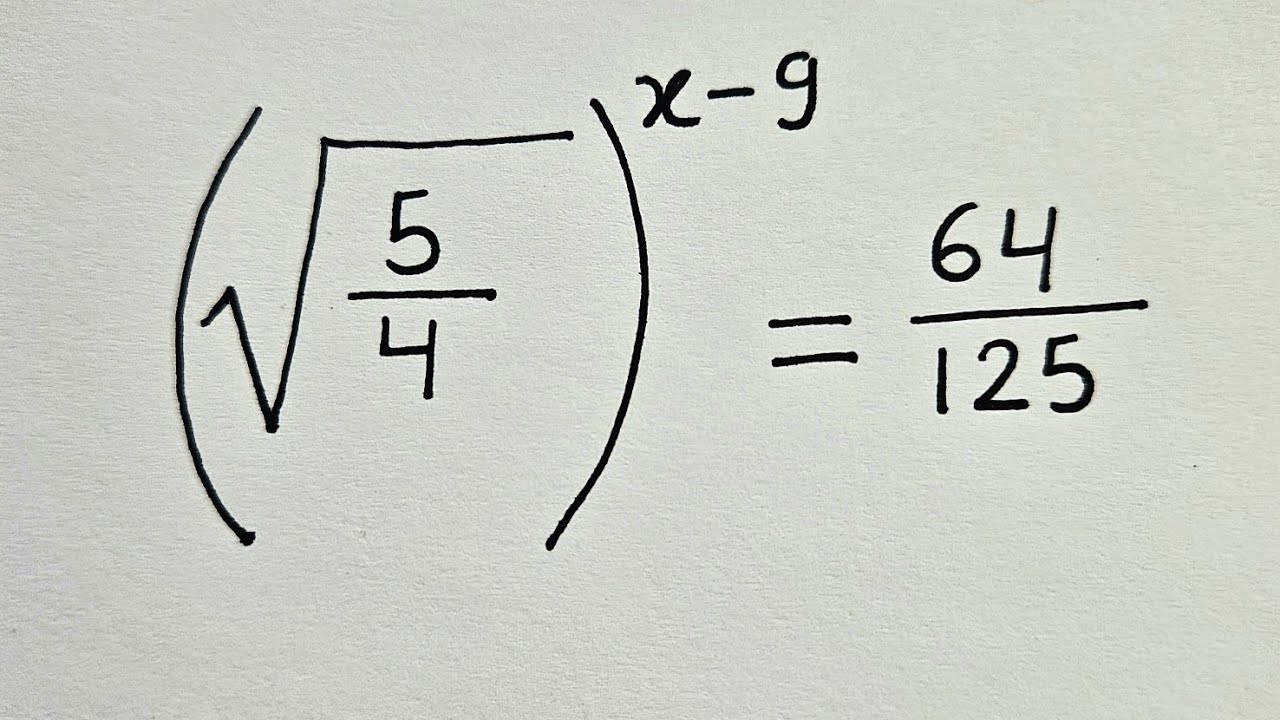 (√(5/4))^(x-9) = 64/125